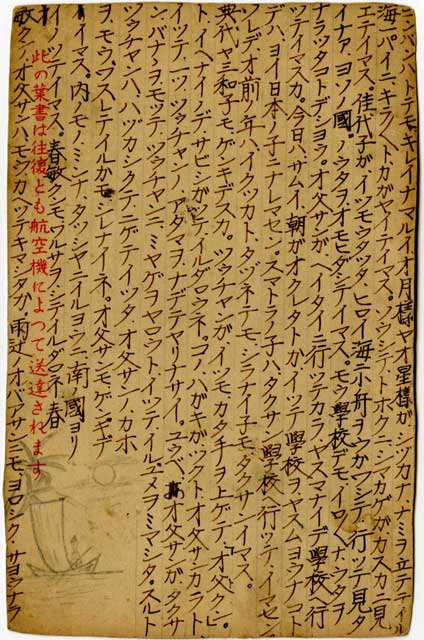 コンバンハトテモキレイナマルイオ月様ヤオ星様ガシヅカナナミヲ立テテイル
海一パイニキラ〱トカガヤイテイマス。ソウシテトホクニシマカゲガカスカニ見
エテイマス。佳代子ガイツモウタッタヒロイ海ニ小舟ヲウカワシテ行ッテ見タ
イナア、ヨソノ國ノウタヲオモヒダシテイマス。モウ學校デモイロ〱ナウタヲ
ナラッタコトデショウ。オ父サンガヘイタイニ行ッテカラ、ヤスマナイデ學校ヘ行
ッテイマスカ。今日ハサムイ、朝ガオクレタトカイッテ學校ヲヤスムヨウナコト
デハヨイ日本ノ子ニナレマセン。スマトラノ子ハタクサン學校ヘ行ッテイマセン
ソレデオ前ノ年ハイクツカト、タヅネテモシラナイ子モタクサンイマス。
典代ヤ三和子モゲキデスカ。ツウチャンガイツモカタテヲ上ゲテ、オ父クン。
トイヘナイノデサビシガッテイルダロウネ。コノハガキガツクトオ父サンカラト
イッテ、ツウチャンノアタマヲナデテヤリナサイ。ユウベ、オ父サンガタクサ
ンバナヲモッテツウチャンニミヤゲヲヤロウトイッテイルユメヲミマシタ。スルト
ツウチャンハハヅカシクテニゲテイッタ。オ父サンノカホ
ヲモウワスレテイルカモシレナイネ。オ父サンモゲンキデ
イマス。内ノモノミンナタッシャニイルヨウニ南國ヨリ
イノッテイマス。春敏クンモワルサヲシテイルダロネ春
敏クンオ父サンハモウカヘッテキマシタカ雨辻ノオバアサンニモヨロシクサヨウナラ
此の葉書は往復とも航空機によつて送達されます